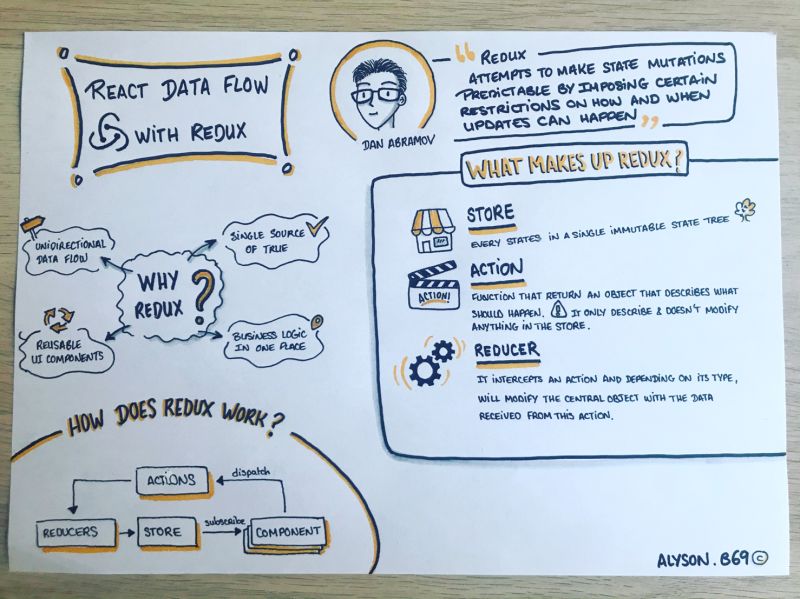 REACT DATA FLOW
WITH REDUX
DAN ABRAMOV
“ REDUX
ATTEMPTS TO MAKE STATE MUTATIONS
PREDICTABLE BY IMPOSING CERTAIN
RESTRICTIONS ON HOW AND WHEN
UPDATES CAN HAPPEN ”
WHY
REDUX ?
UNIDIRECTIONAL
DATA FLOW
SINGLE SOURCE
OF TRUE
REUSABLE
UI COMPONENTS
BUSINESS LOGIC
IN ONE PLACE
WHAT MAKES UP REDUX?
STORE
EVERY STATES IN A SINGLE IMMUTABLE STATE TREE
ACTION
ACTION!
FUNCTION THAT RETURN AN OBJECT THAT DESCRIBES WHAT
SHOULD HAPPEN. ⚠ IT ONLY DESCRIBE & DOESN'T MODIFY
ANYTHING IN THE STORE.
REDUCER
IT INTERCEPTS AN ACTION AND DEPENDING ON ITS TYPE,
WILL MODIFY THE CENTRAL OBJECT WITH THE DATA
RECEIVED FROM THIS ACTION.
HOW DOES REDUX WORK?
ACTIONS
dispatch
REDUCERS
STORE
subscribe
COMPONENT
ALYSON.B69 ©